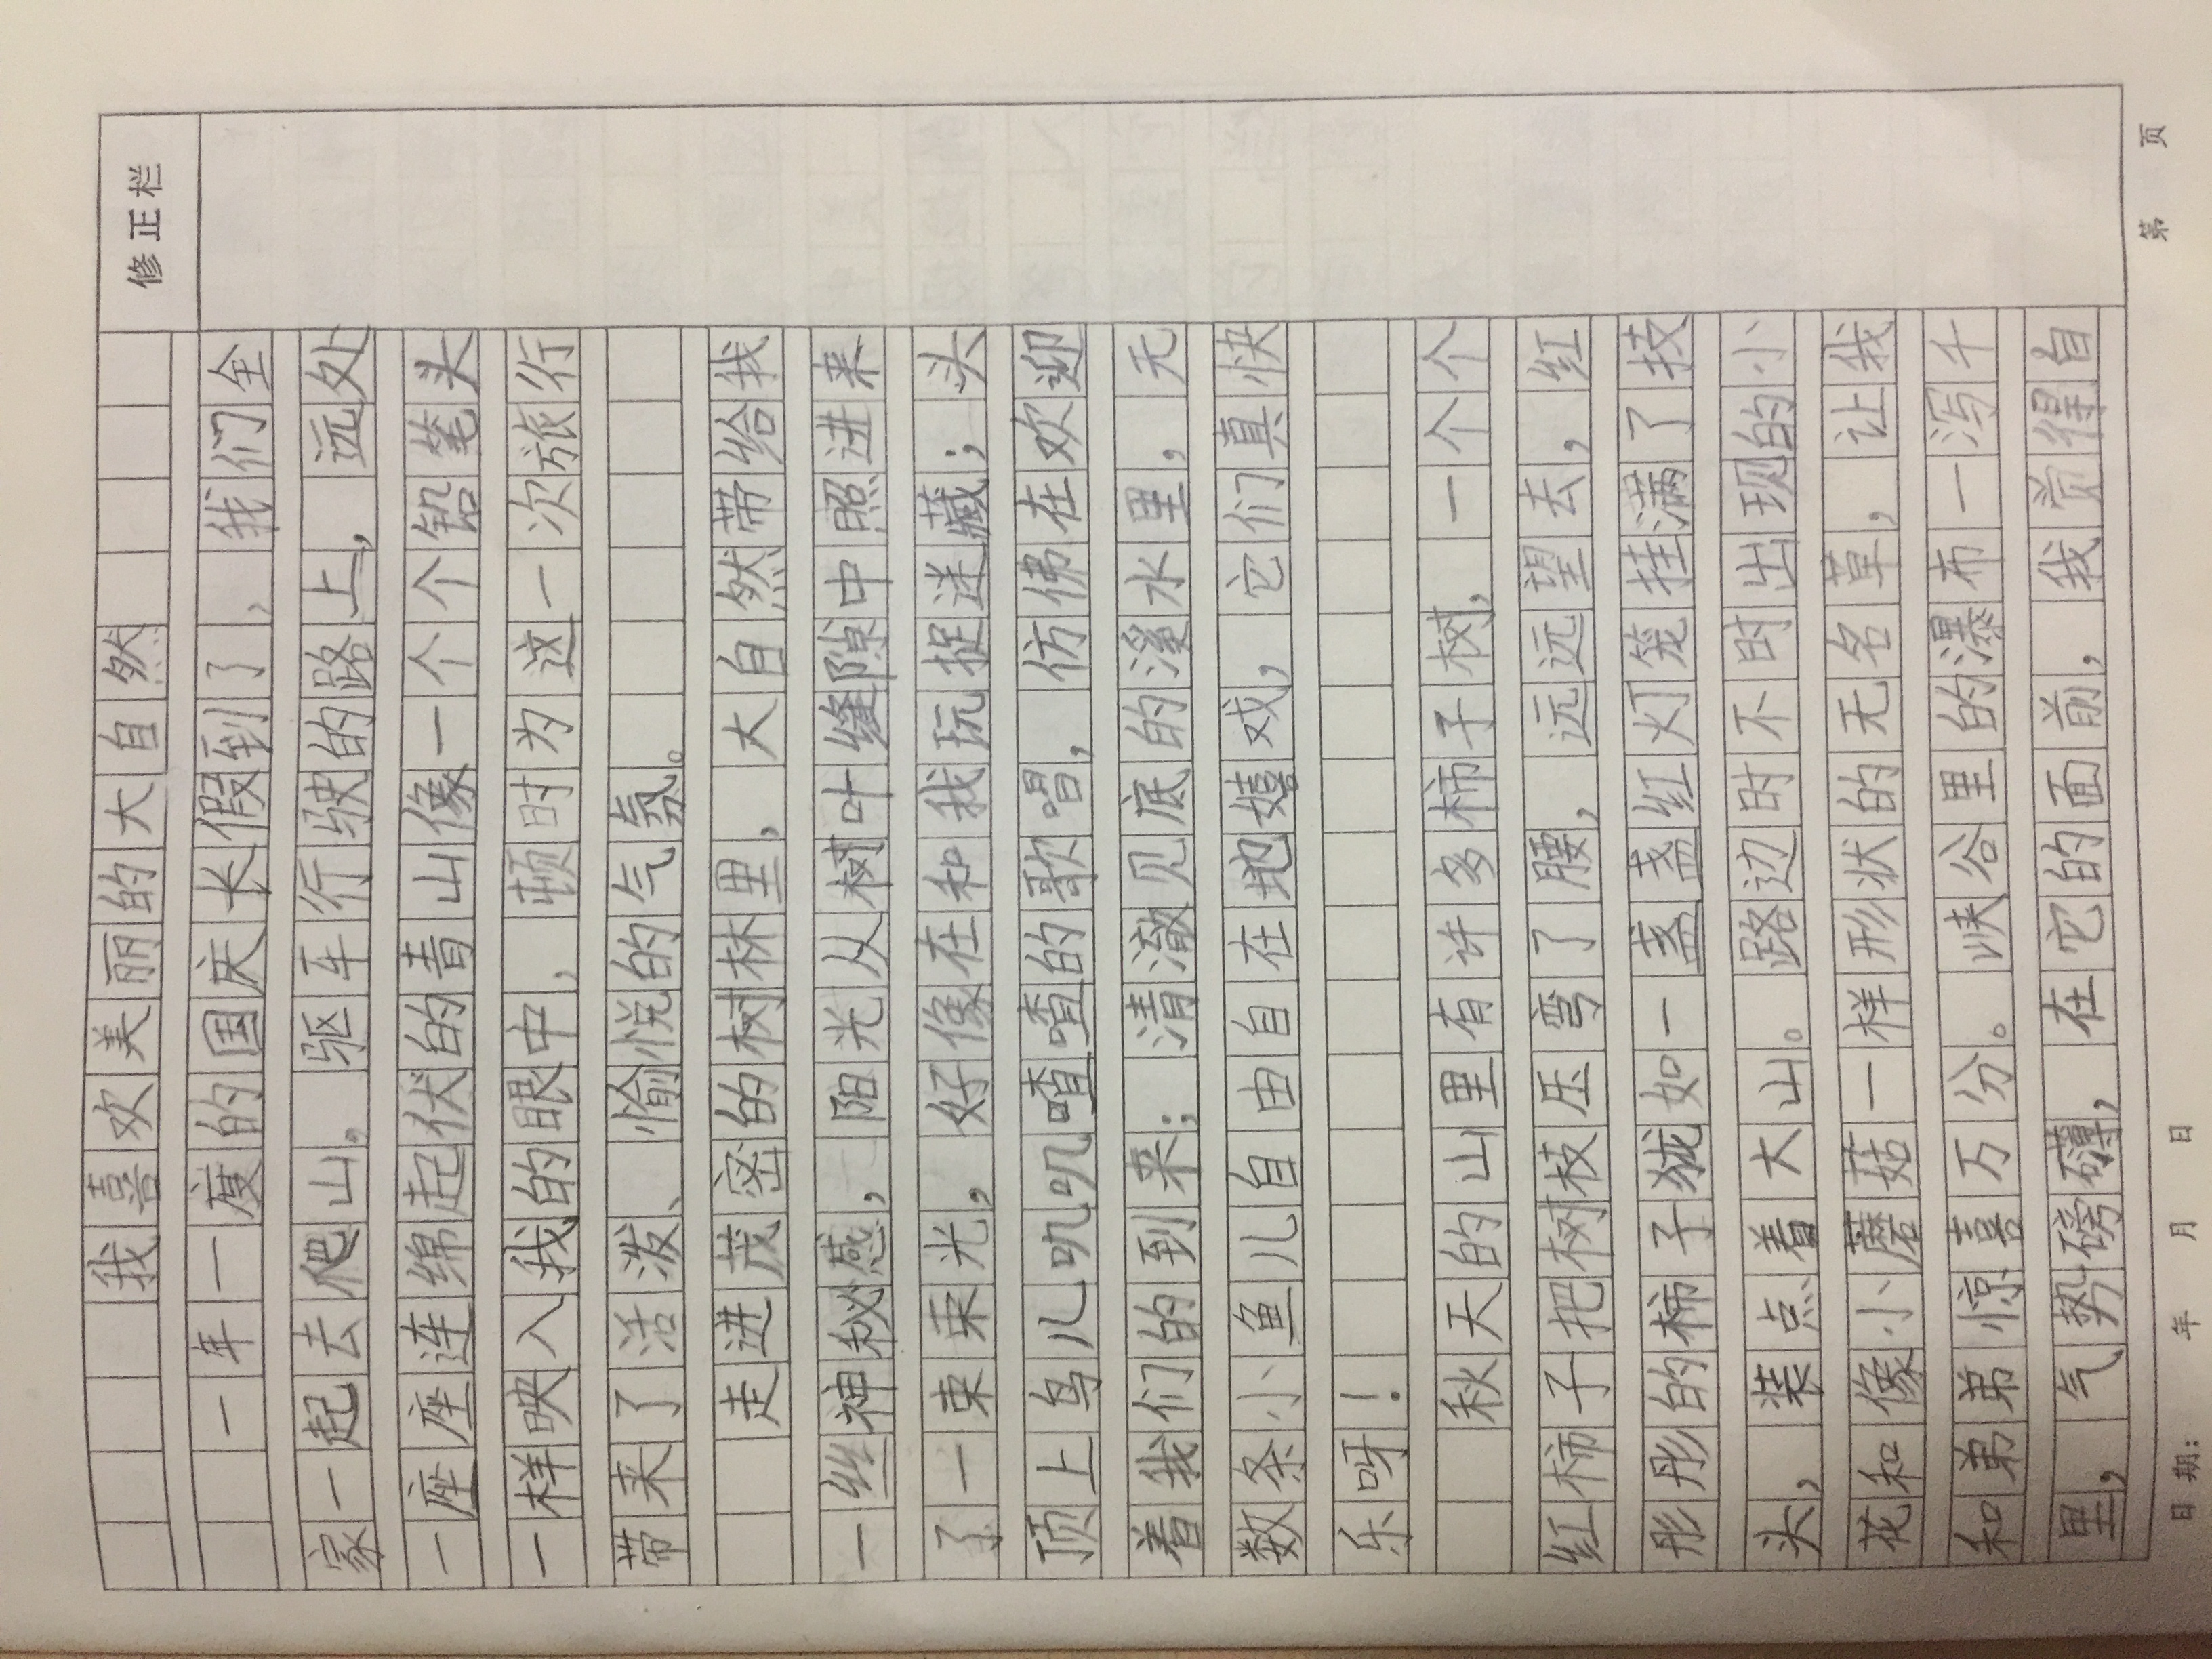 我喜欢美丽的大自然
修正栏
一年一度的国庆长假到了，我们全
家一起去爬山。驱车行驶的路上，远处
一座座连绵起伏的青山像一个个铅笔头
一样映入我的眼中，顿时为这一次旅行
带来了活泼、愉悦的气氛。
走进茂密的树林里，大自然带给我
一丝神秘感，阳光从树叶缝隙中照进来
了一束束光，好像在和我玩捉迷藏；头
顶上鸟儿叽叽喳喳的歌唱，仿佛在欢迎
着我们的到来；清澈见底的溪水里，无
数条小鱼儿自由自在地嬉戏，它们真快
乐呀！
秋天的山里有许多柿子树，一个个
红柿子把树枝压弯了腰，远远望去，红
彤彤的柿子犹如一盏盏红灯笼挂满了技
头，装点着大山。路边时不时出现的小
花和像小蘑菇一样形状的无名草，让我
和弟弟惊喜万分。峡谷里的瀑布一泻千
里，气势磅礴，在它的面前，我觉得自
日期： 年 月 日 第 页